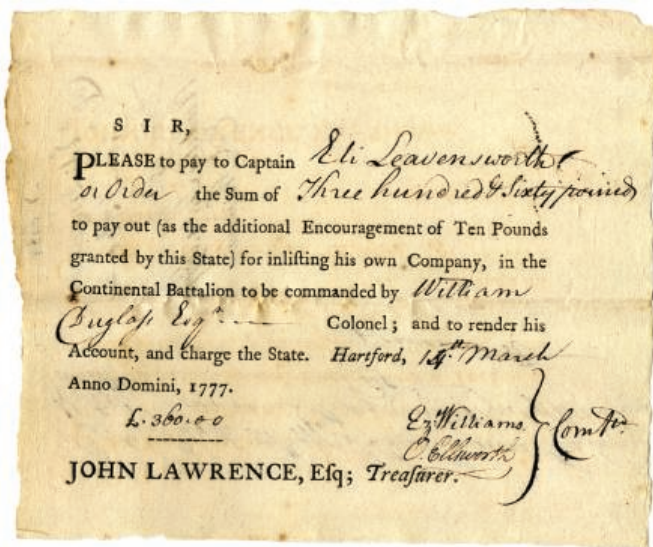 S I R,
PLEASE to pay to Captain Eli Leavensworth
or Order the Sum of Three hundred & Sixty pounds
to pay out (as the additional Encouragement of Ten Pounds
granted by this State) for inlisting his own Company, in the
Continental Battalion to be commanded by William
Duglass Esqr. Colonel; and to render his
Account, and charge the State. Hartford, 14th March
Anno Domini, 1777.
£. 360.0.0
Ez Williams
O. Ellsworth
Comtee
JOHN LAWRENCE, Esq; Treasurer.